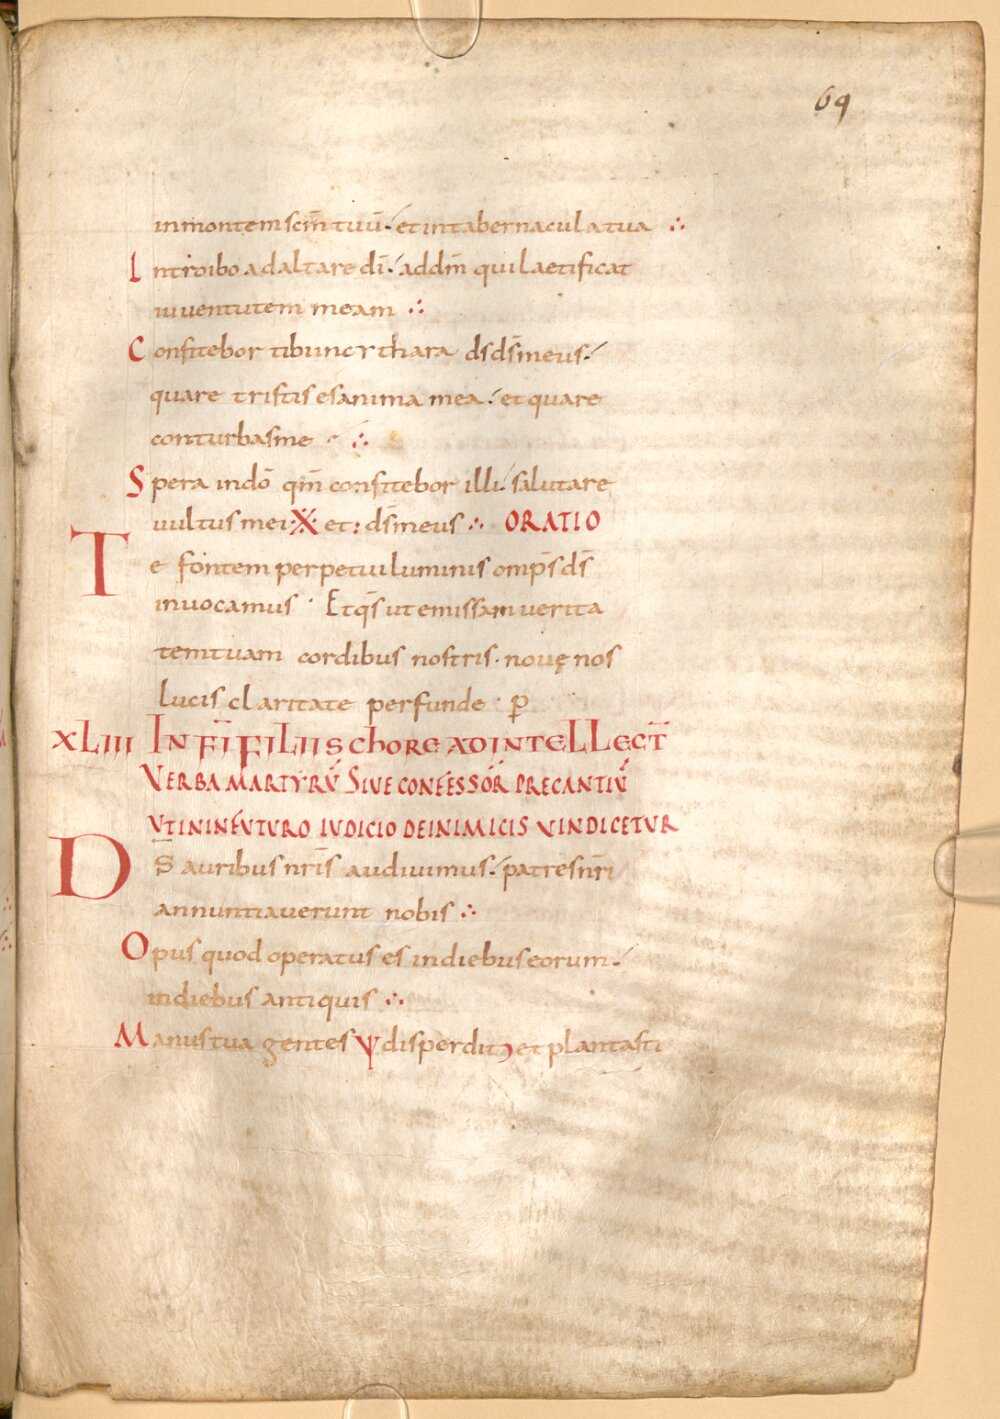 69
inmontem scm̄ tuū· et intabernacula tua ∴
Introibo adaltare dī· addm̄ qui laetificat
iuventutem meam ∴
Confitebor tibi incythara ds̄ ds̄ meus·
quare tristis es anima mea· et quare
conturbas me ∴
Spera indō qm̄ confitebor illi· salutare
uultus mei ·※· et: ds̄ meus ∴ ORATIO
Te fontem perpetui luminis omps̄ ds̄
inuocamus · Et qs̄ ut emissam uerita
tem tuam cordibus nostris · nouę nos
lucis claritate perfunde · p̄
XLIII IN FĪ FILIIS chORE AD INTELLECT̄
VERBA MARTYRŪ SIVE CONFESSOR̄ PRECANTIŪ
UT IN FUTURO IUDICIO DE INIMICIS VINDICETUR
DS̄ auribus nr̄is audiuimus· patres nr̄i
annuntiauerunt nobis ∴
Opus quod operatus es indiebus eorum·
indiebus antiquis ∴
Manus tua gentes ψ disperdit ꜿ et plantasti